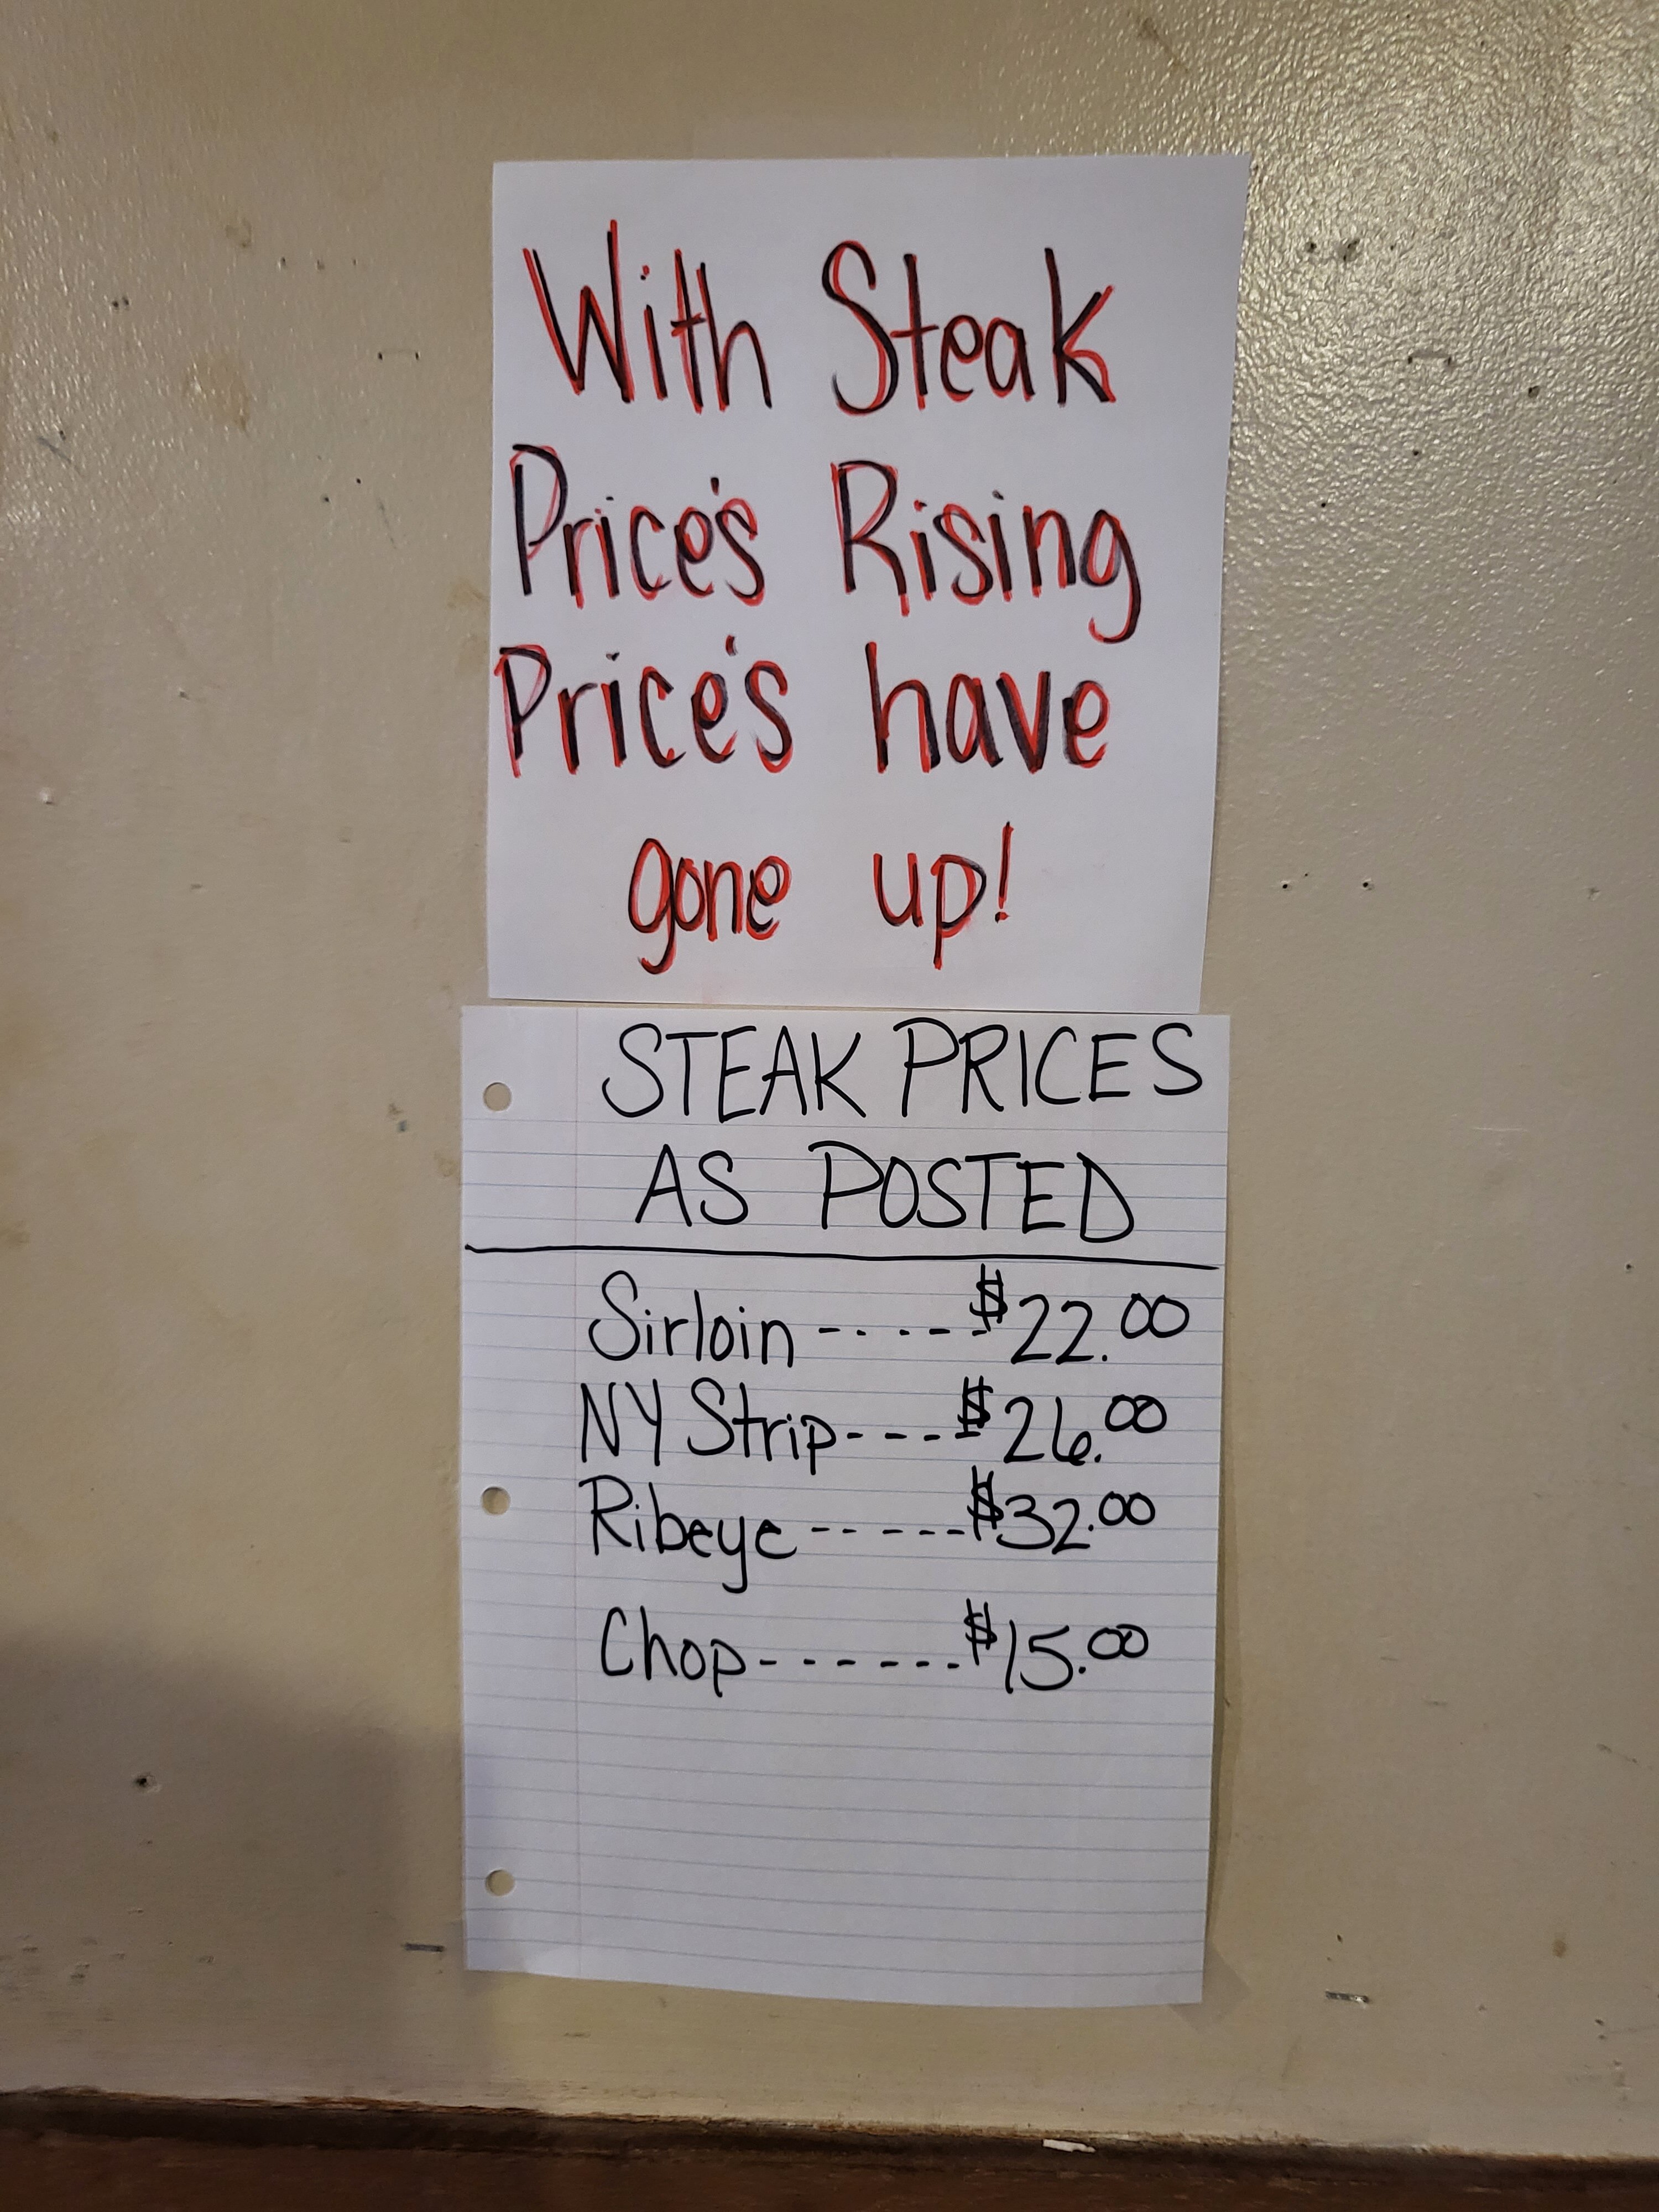 With Steak
Price's Rising
Price's have
gone up!
STEAK PRICES
AS POSTED
Sirloin ------ $22.00
NY Strip---- $26.00
Ribeye ------ $32.00
Chop------- $15.00